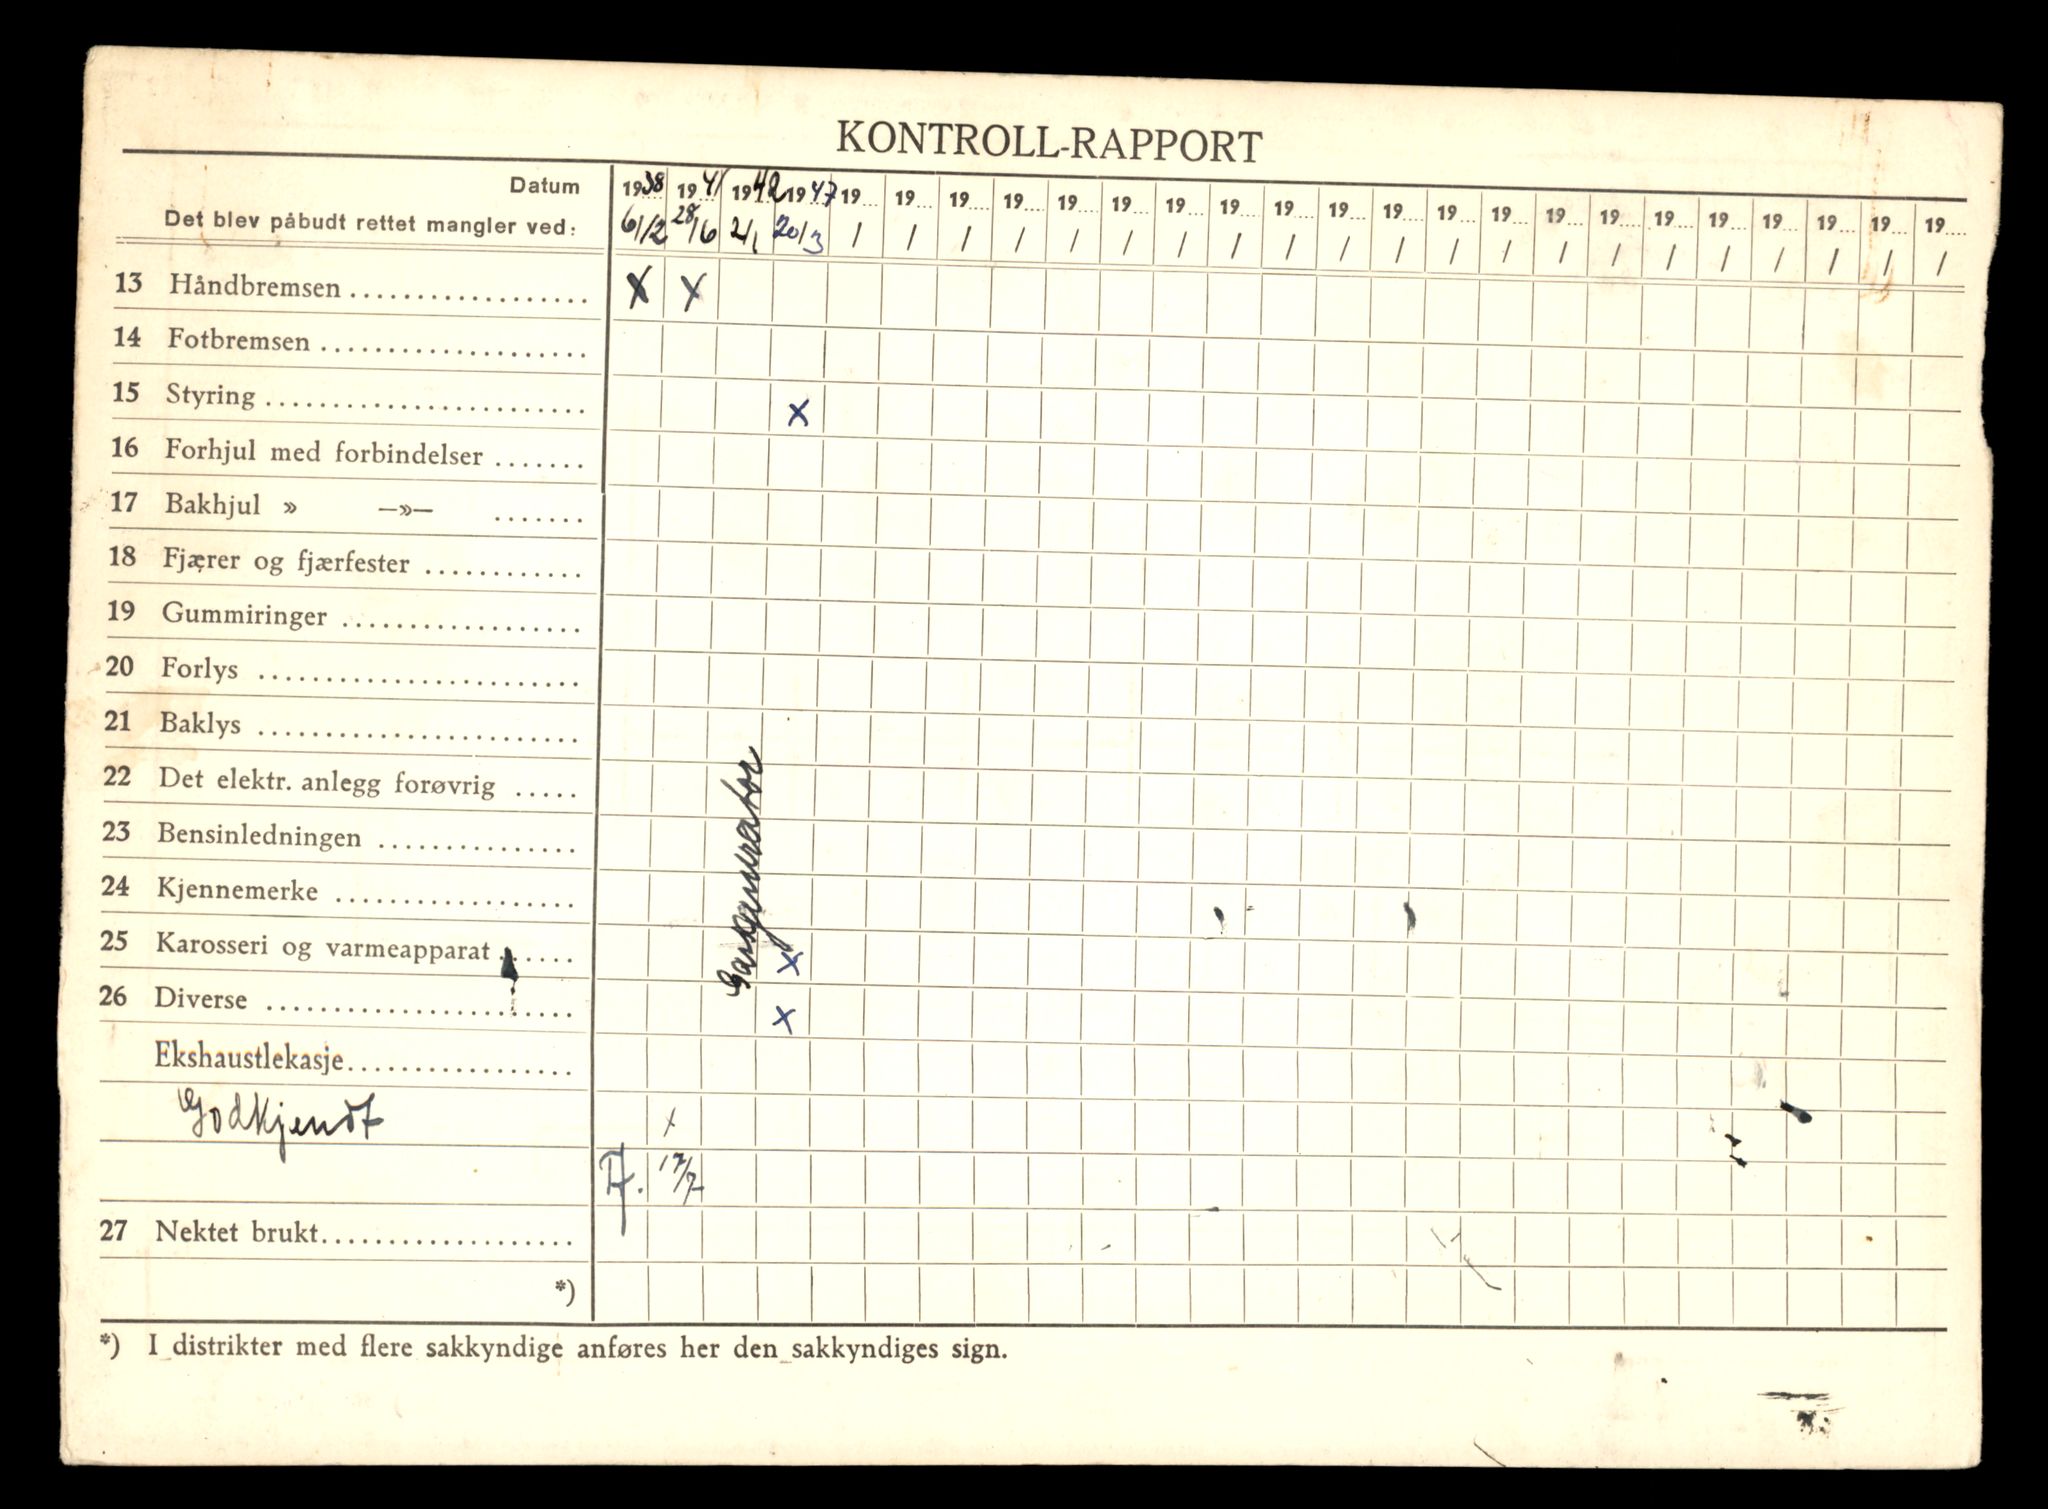 KONTROLL-RAPPORT
Datum 19 38 19 41 19 42 19 47 19.... 19.... 19.... 19.... 19.... 19.... 19.... 19.... 19.... 19.... 19.... 19.... 19.... 19.... 19.... 19.... 19.... 19.... 19.... 19.... 19....
Det blev påbudt rettet mangler ved: 6/12 28/6 2/1 20/3 / / / / / / / / / / / / / / / / / / / / /
13 Håndbremsen .................. x x
14 Fotbremsen ....................
15 Styring ........................ x
16 Forhjul med forbindelser .......
17 Bakhjul » —»— .......
18 Fjærer og fjærfester ............
19 Gummiringer ..................
20 Forlys ........................
21 Baklys ........................
22 Det elektr. anlegg forøvrig .....
23 Bensinledningen ...............
24 Kjennemerke ..................
Gassgenerator
25 Karosseri og varmeapparat ...... x
26 Diverse ....................... x
Ekshaustlekasje.................
Godkjendt x
17/7
27 Nektet brukt...................
*)
*) I distrikter med flere sakkyndige anføres her den sakkyndiges sign.